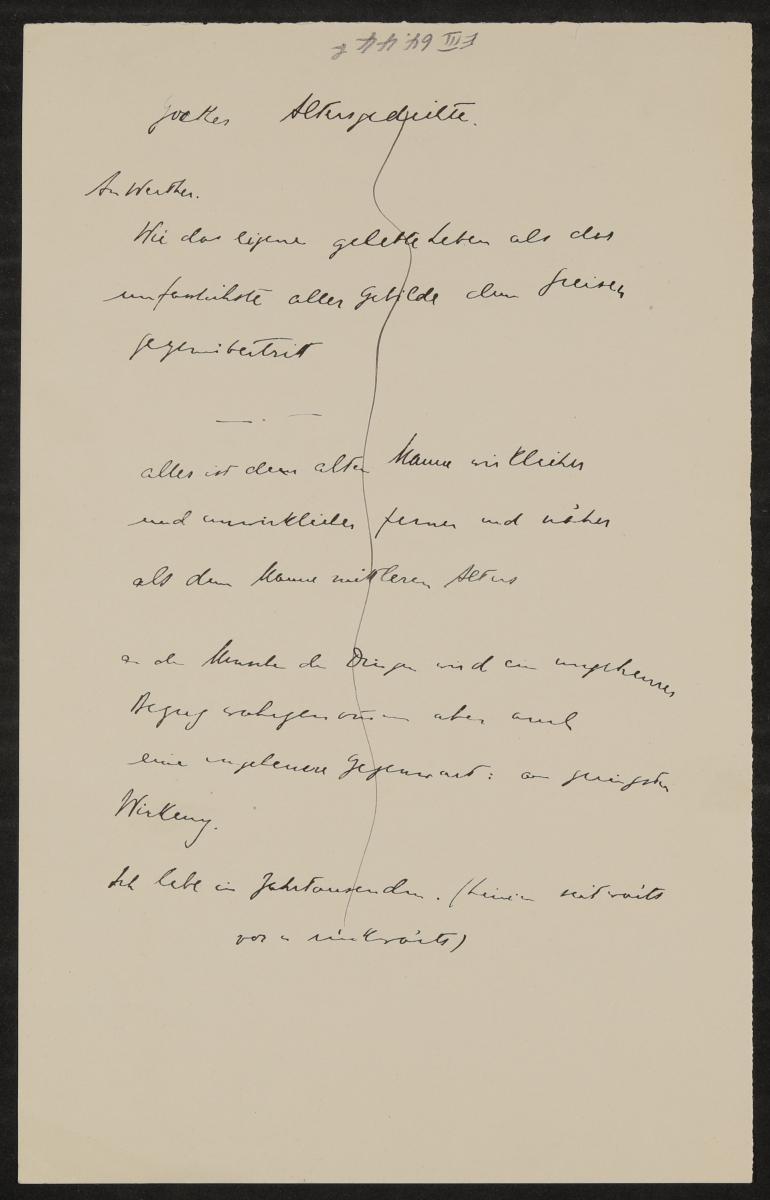 F III 64.44
Goethes Altersgedichte.
An Werther.
Wie das eigene gelebte Leben als das
unfasslichste aller Gebilde dem Greisen
gegenübertritt
alles ist dem alten Manne wirklicher
und unwirklicher ferner und näher
als dem Manne mittleren Alters
an den der Dinge wird ein ungeheures
Bezug wahrgenommen aber auch
eine ungeheuere Gegenwart: an geringsten
Wirkung.
Ich lebe in Jahrtausenden. (Linien seitwärts
vor u rückwärts)